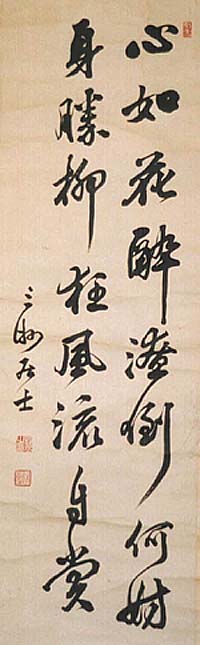 心如花醉潦倒何妨
身勝柳狂風流自賞
三洲居士